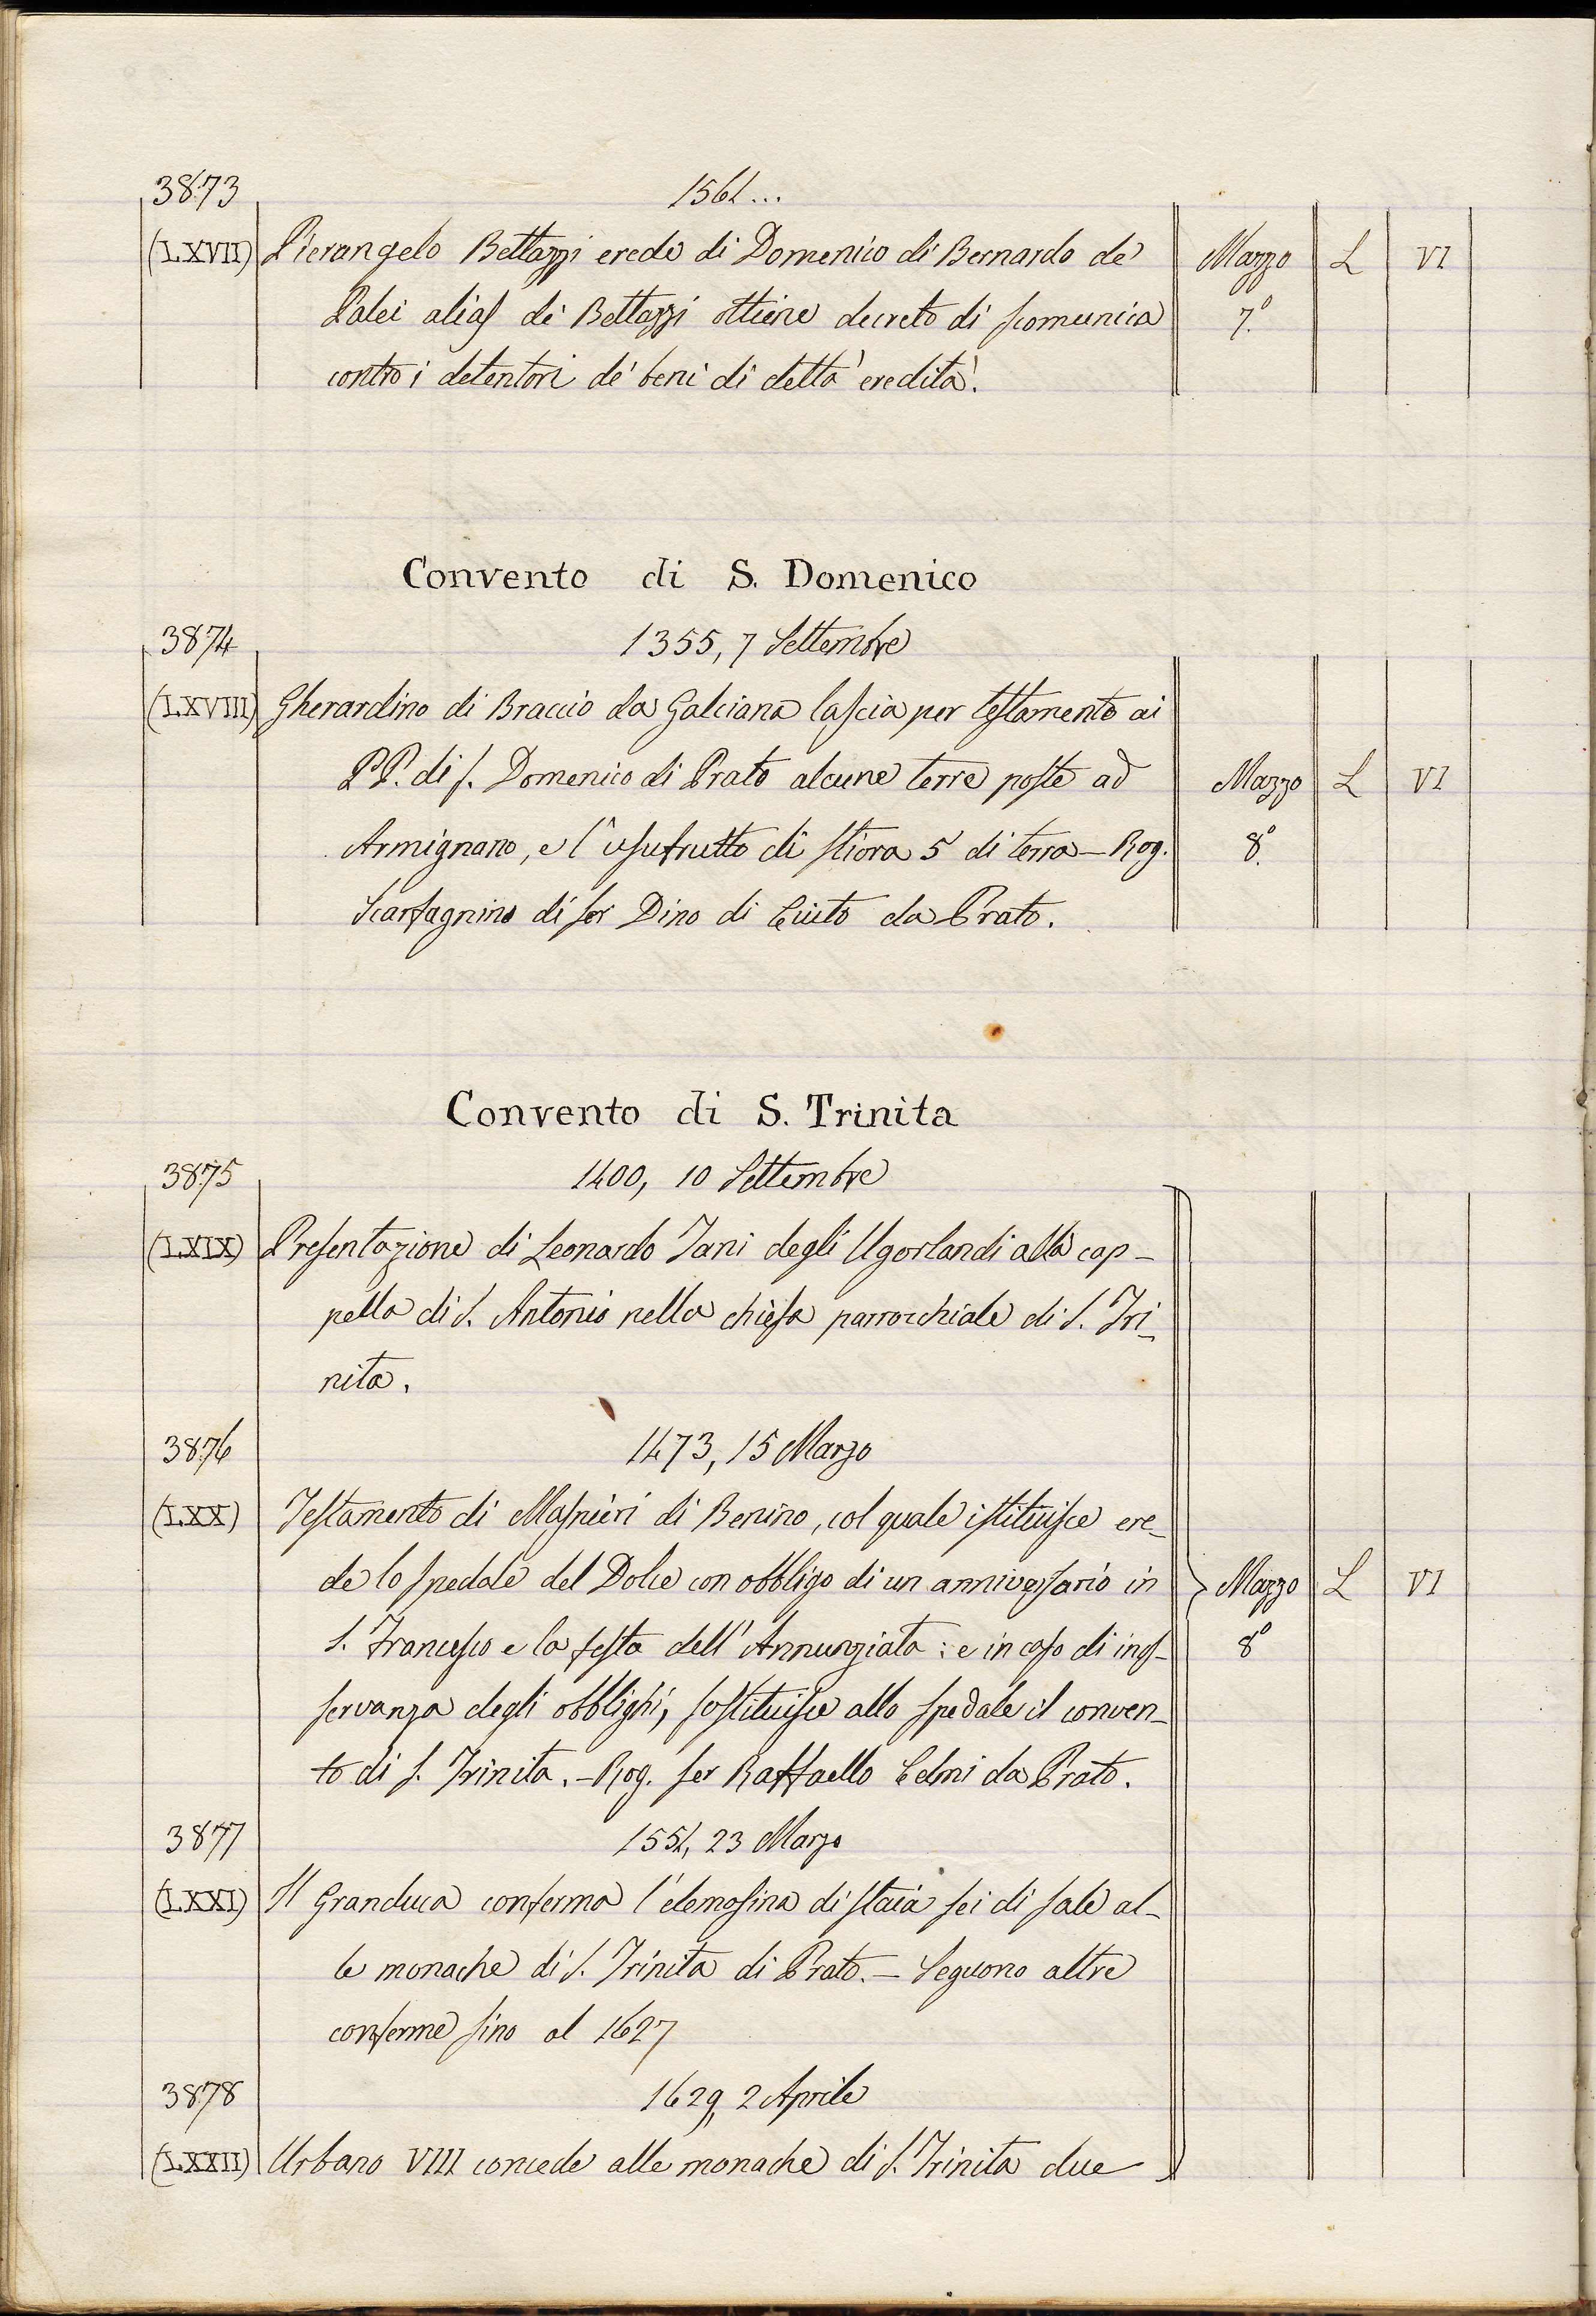 3873 1561...
(LXVII) Pierangelo Bettazzi erede di Domenico di Bernardo de' Mazzo L VI
Palei alias de' Bettazzi ottiene decreto di scomunica 7.°
contro i detentori de' beni di detta eredità.
Convento di S. Domenico
3874 1355, 7 Settembre
(LXVIII) Gherardino di Braccio da Galciana lascia per testamento ai
PP. di S. Domenico di Prato alcune terre poste ad Mazzo L VI
Armignano, e l'usufrutto di stiora 5 di terra - Rog. 8.°
Scarfagnino di ser Dino di Ciuto da Prato.
Convento di S. Trinita
3875 1400, 10 Settembre
(LXIX) Presentazione di Leonardo Tani degli Ugorlandi alla cap-
pella di S. Antonio nella chiesa parrocchiale di S. Tri-
nita.
3876 1473, 15 Marzo
(LXX) Testamento di Masnieri di Benino, col quale istituisce ere-
de lo spedale del Dolce con obbligo di un anniversario in Mazzo L VI
S. Francesco e la festa dell'Annunziata: e in caso di inos- 8°
servanza degli obblighi, sostituisce allo spedale il conven-
to di S. Trinita. - Rog. ser Raffaello Celmi da Prato.
3877 1551, 23 Marzo
(LXXI) Il Granduca conferma l'elemosina di staia sei di sale al-
le monache di S. Trinita di Prato. - Seguono altre
conferme sino al 1627
3878 1629, 2 Aprile
(LXXII) Urbano VIII concede alle monache di S. Trinita due